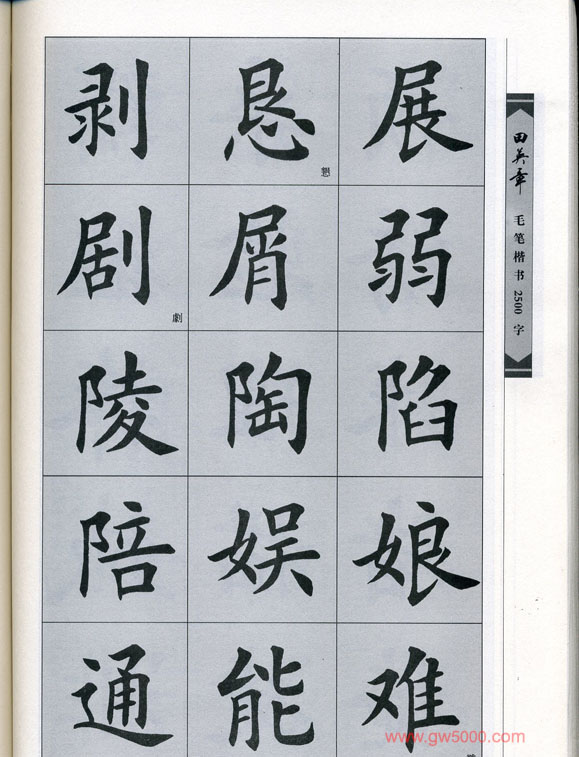 剥 恳 展
懇
剧 屑 弱
劇
陵 陶 陷
陪 娱 娘
通 能 难
田英章 毛笔楷书2500字
www.gw5000.com